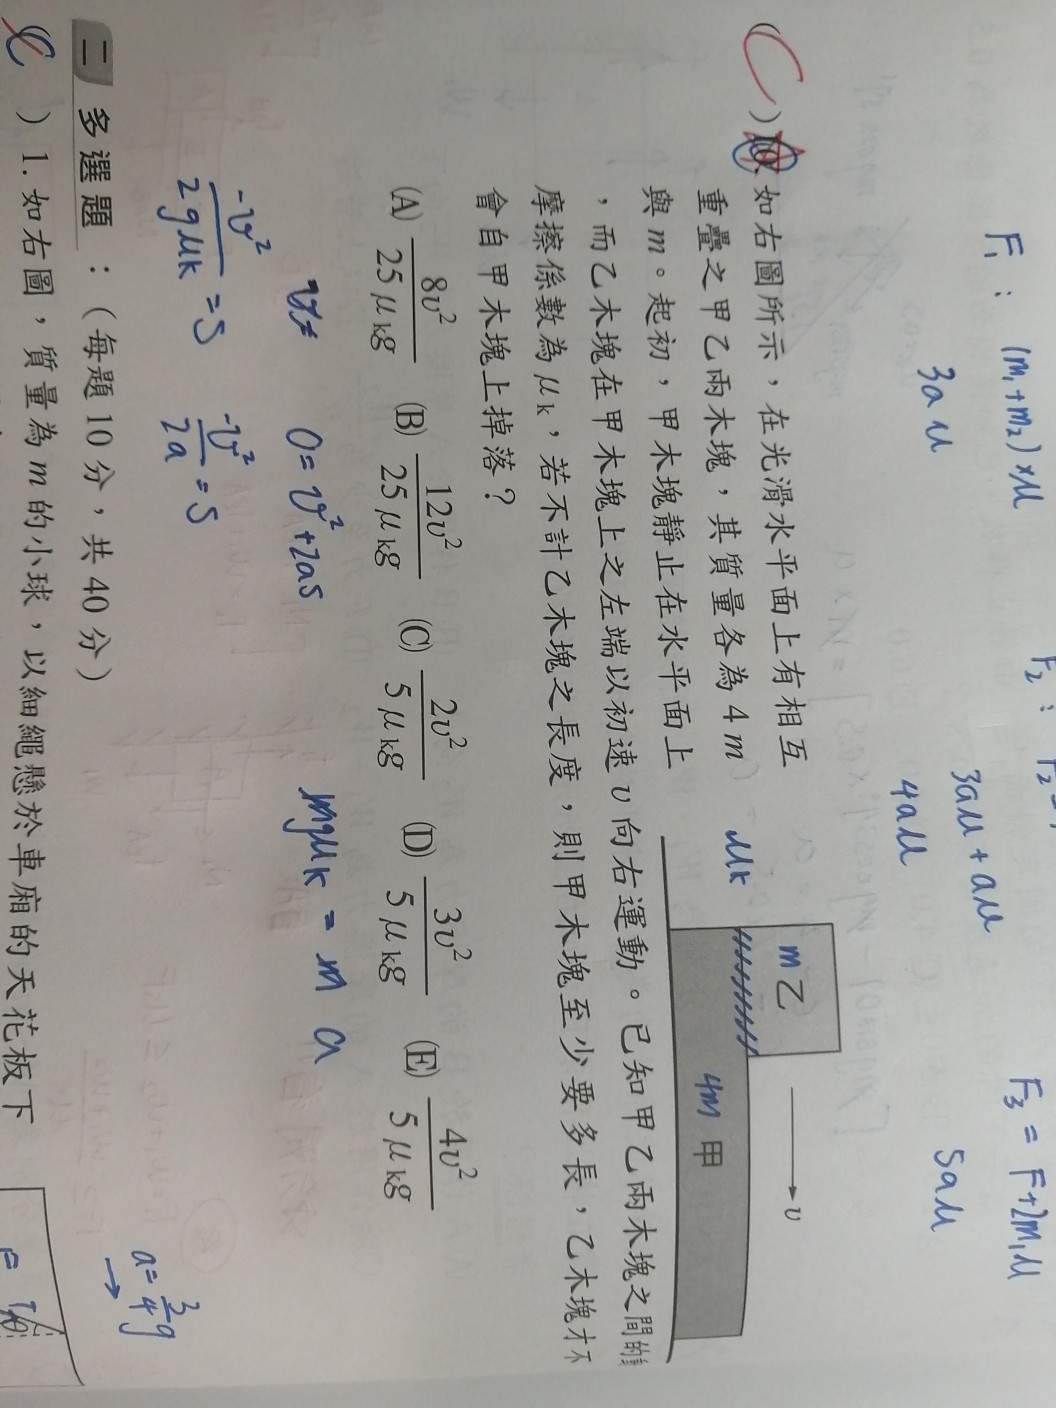 F₁ : (m₁+m₂)×μ
3aμ
F₂ :
3aμ+aμ
4aμ
F₃ = F+2m₁μ
5aμ
(C)
如右圖所示，在光滑水平面上有相互
重疊之甲乙兩木塊，其質量各為 4 m
與 m。起初，甲木塊靜止在水平面上
，而乙木塊在甲木塊上之左端以初速 v 向右運動。已知甲乙兩木塊之間的
摩擦係數為 μk，若不計乙木塊之長度，則甲木塊至少要多長，乙木塊才不
會自甲木塊上掉落？
μk
m 乙
4m 甲
v
(A) 8v²/25μkg (B) 12v²/25μkg (C) 2v²/5μkg (D) 3v²/5μkg (E) 4v²/5μkg
0=v²+2as
mgμk = m a
-v²/2gμk = S
-v²/2a = S
a=3/4g
→
二 多選題：（每題 10 分，共 40 分）
) 1. 如右圖，質量為 m 的小球，以細繩懸於車廂的天花板下